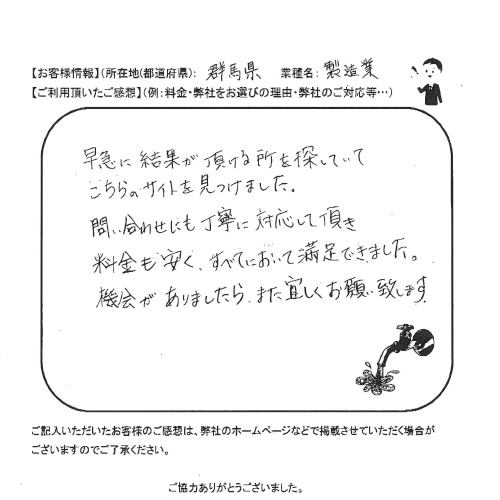 【お客様情報】(所在地(都道府県): 群馬県 業種名: 製造業
【ご利用頂いたご感想】(例:料金・弊社をお選びの理由・弊社のご対応等…)
早急に結果が頂ける所を探していて
こちらのサイトを見つけました。
問い合わせにも丁寧に対応して頂き
料金も安く、すべてにおいて満足できました。
機会がありましたら、また宜しくお願い致します
ご記入いただいたお客様のご感想は、弊社のホームページなどで掲載させていただく場合が
ございますのでご了承ください。
ご協力ありがとうございました。